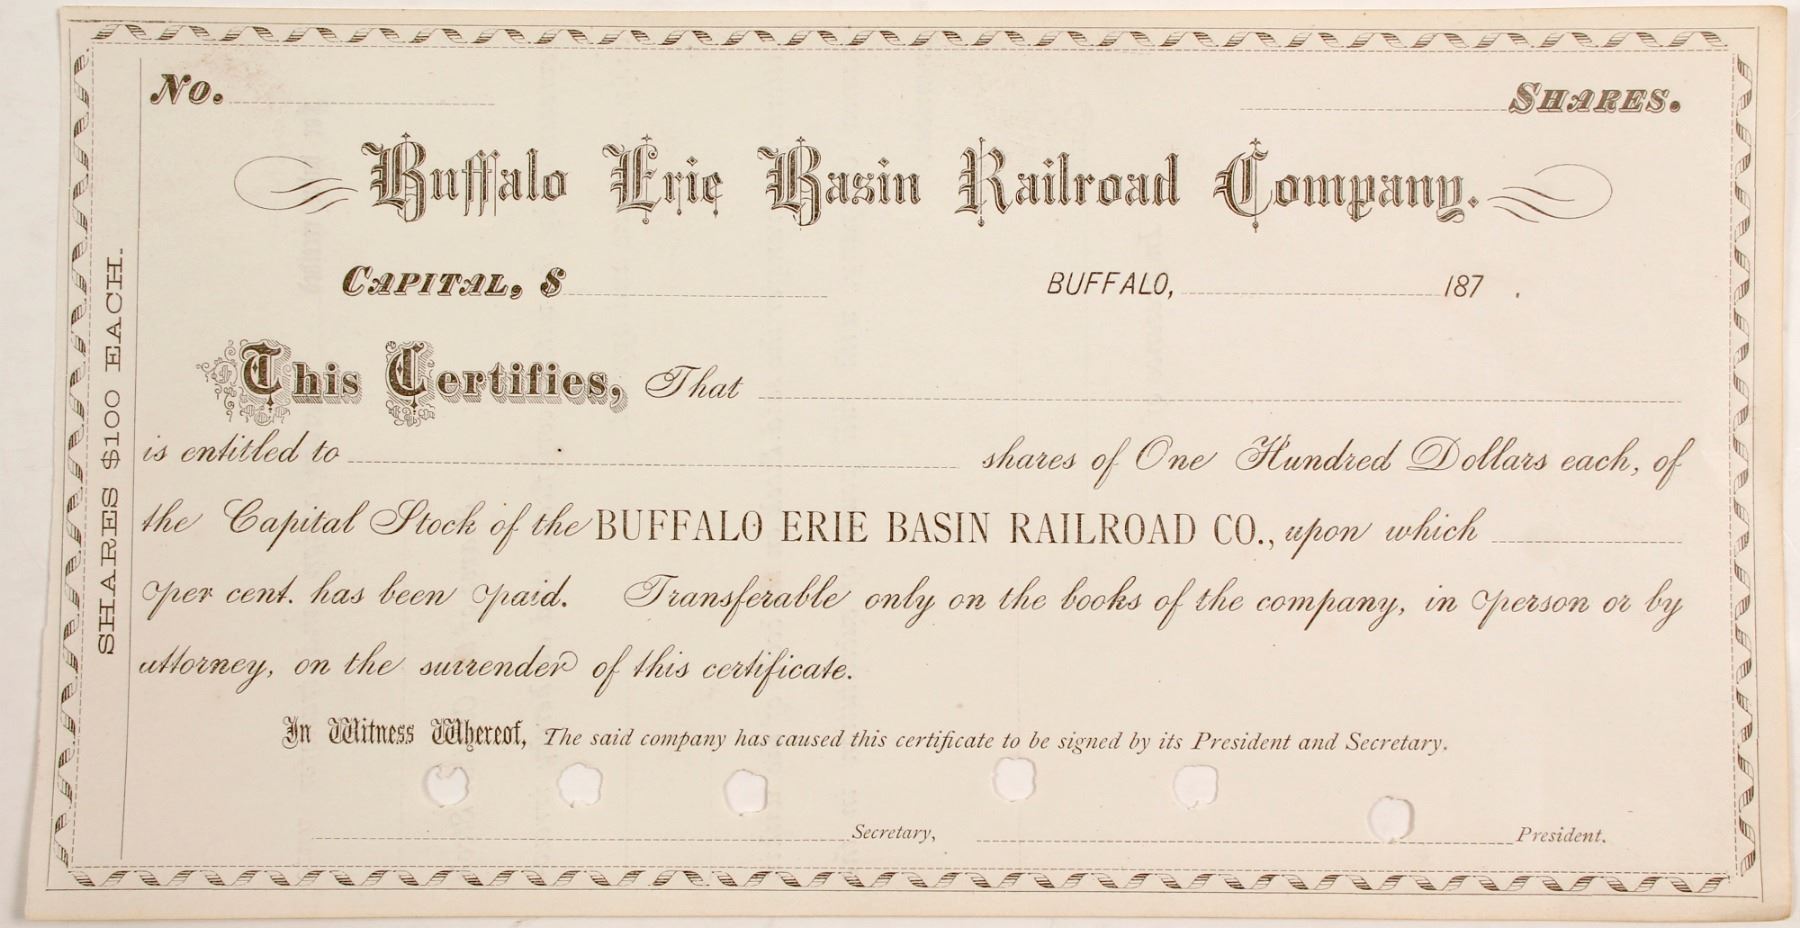 No. SHARES.
Buffalo Erie Basin Railroad Company.
CAPITAL, $ BUFFALO, 187 .
This Certifies, That
is entitled to shares of One Hundred Dollars each, of
the Capital Stock of the BUFFALO ERIE BASIN RAILROAD CO., upon which
per cent. has been paid. Transferable only on the books of the company, in person or by
attorney, on the surrender of this certificate.
In Witness Whereof, The said company has caused this certificate to be signed by its President and Secretary.
Secretary, President.
SHARES $100 EACH.